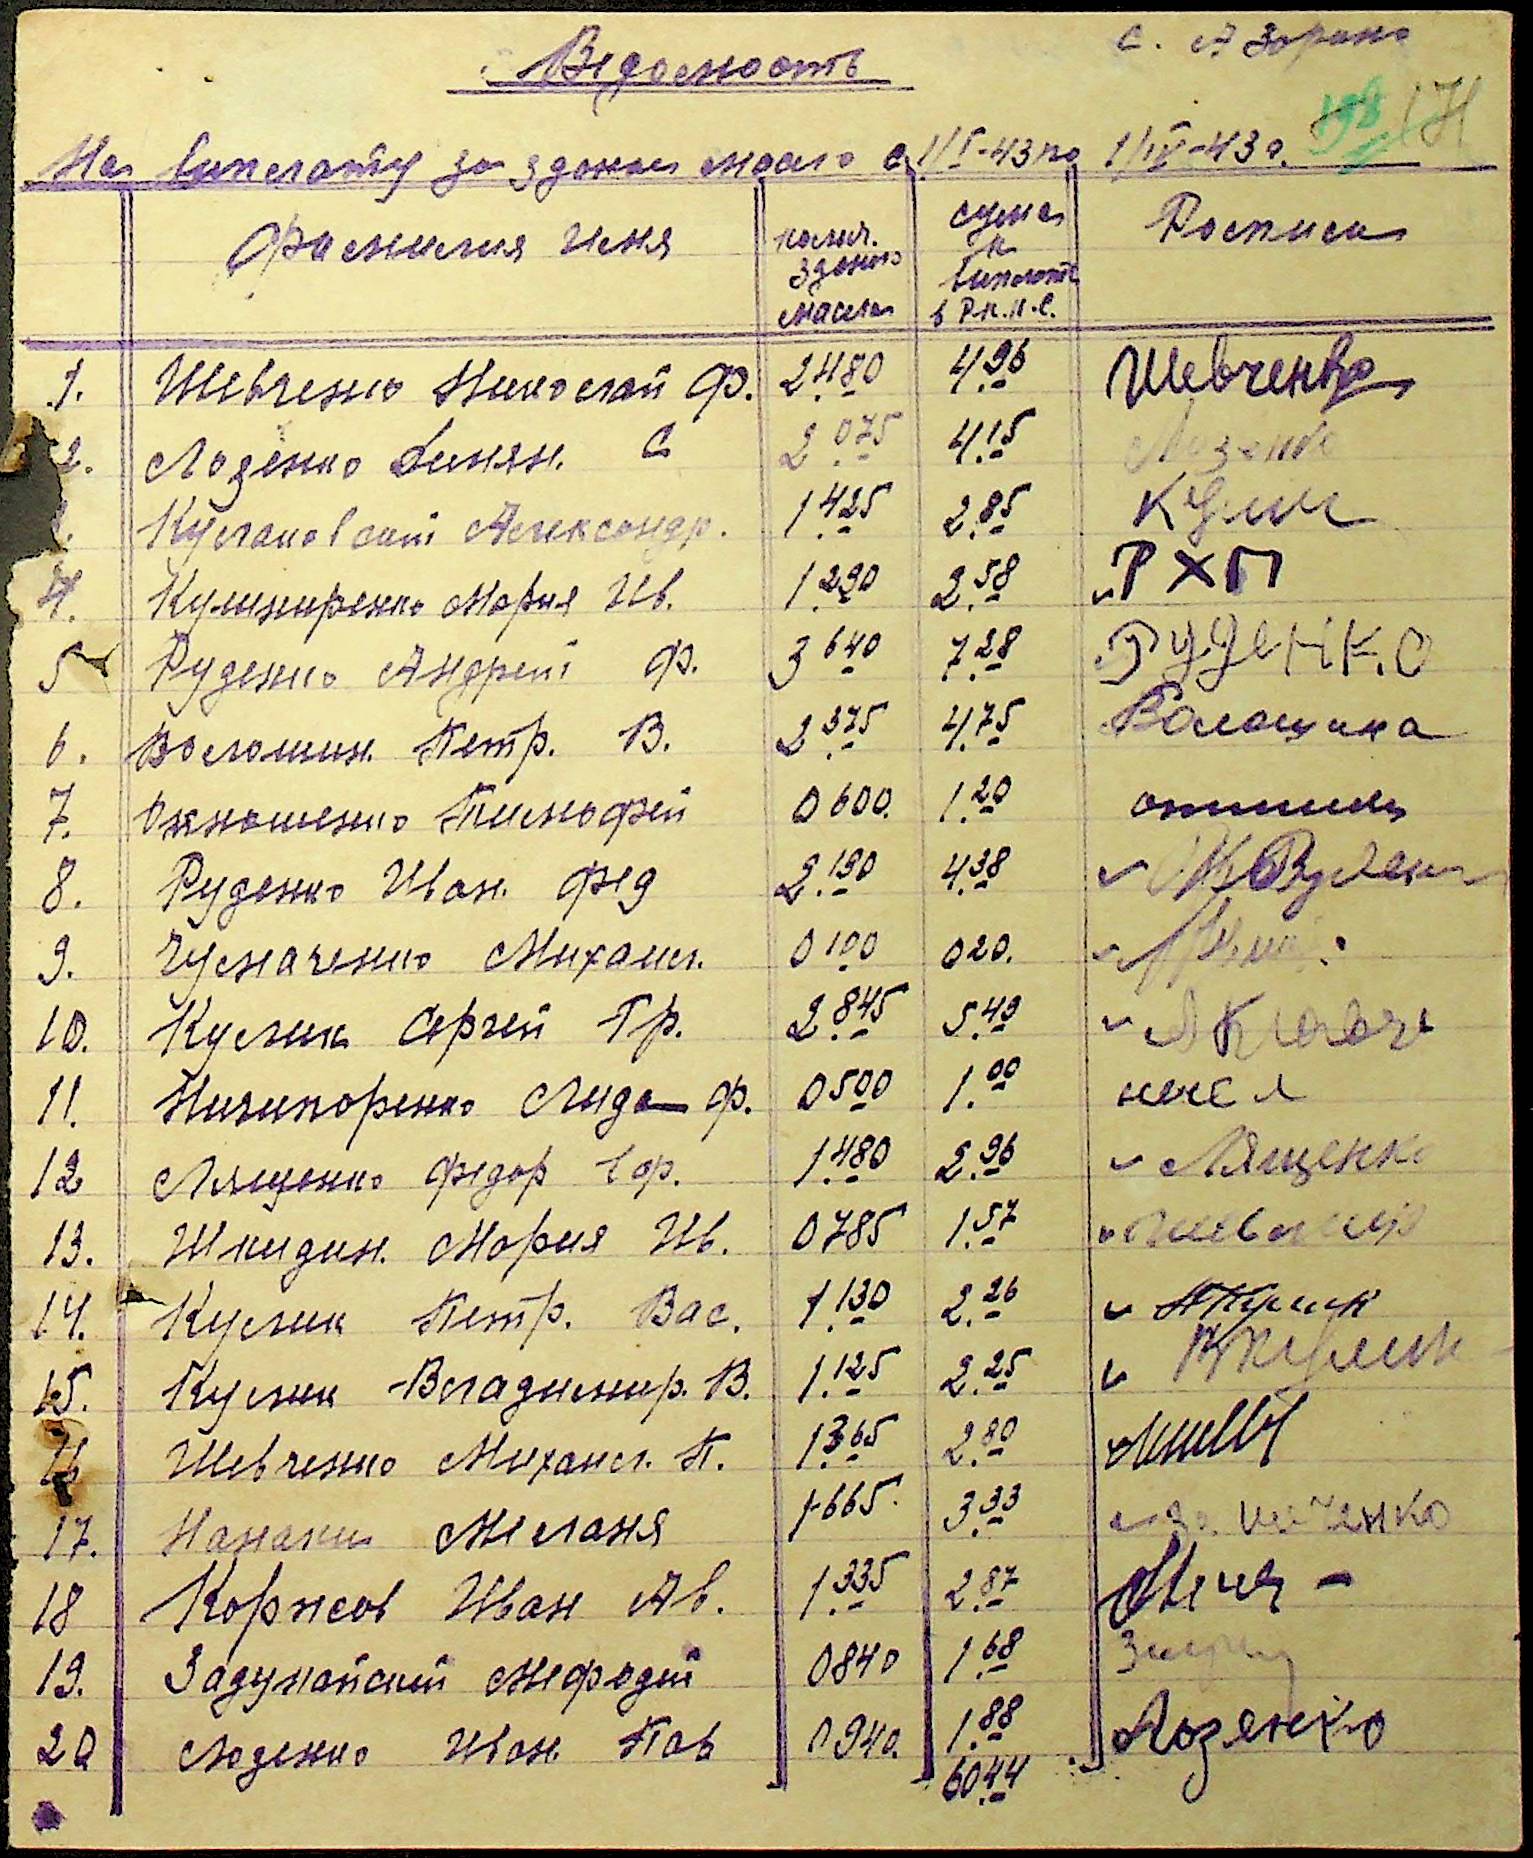 с. Азорано
Ведомость
198 171
На виплату за здоное масло с 1/I-43 по 1/IV-43 г.
Фамилия имя колич. здоного масла сума к виплоте в Р.к.н.с. Росписи
1. Шевченко Николай Ф. 2.480 4.96 Шевченко
2. Лозенко Димян. С 2.075 4.15 Лозенко
Кулаковский Александр. 1.425 2.85 Кулик
4. Кушниренко Мария Ив. 1.290 2.58 РХП
5 Руденко Андрей Ф. 3 640 7.28 РУДЕНКО
6. Волошин. Петр. В. 2.375 4.75 Волощина
7. Тимофей 0 600. 1.20
8. Руденко Иван. Фед 2.190 4.38 Руденко
9. Чумаченко Михаил. 0 100 0 20.
10. Кулик Сергей Гр. 2.845 5.49
11. Ничипоренко Лида Ф. 0 500 1.00
12 Лященко Федор Еф. 1.480 2.96 Лященко
13. Шкидин. Мория Ив. 0785 1.57
14. Кулик Петр. Вас. 1.130 2.26 ПКулик
15. Кулик Владимир. В. 1.125 2.25 ВКулик
16 Шевченко Михаил. П. 1.365 2.80
17. Мелания 1-665. 3.33
18 Коржов Иван Ав. 1.335 2.87
19. Задунайский Мефодий 0840 1.68
20 Лозенко Иван Пав 0940. 1.88 Лозенко
60.44